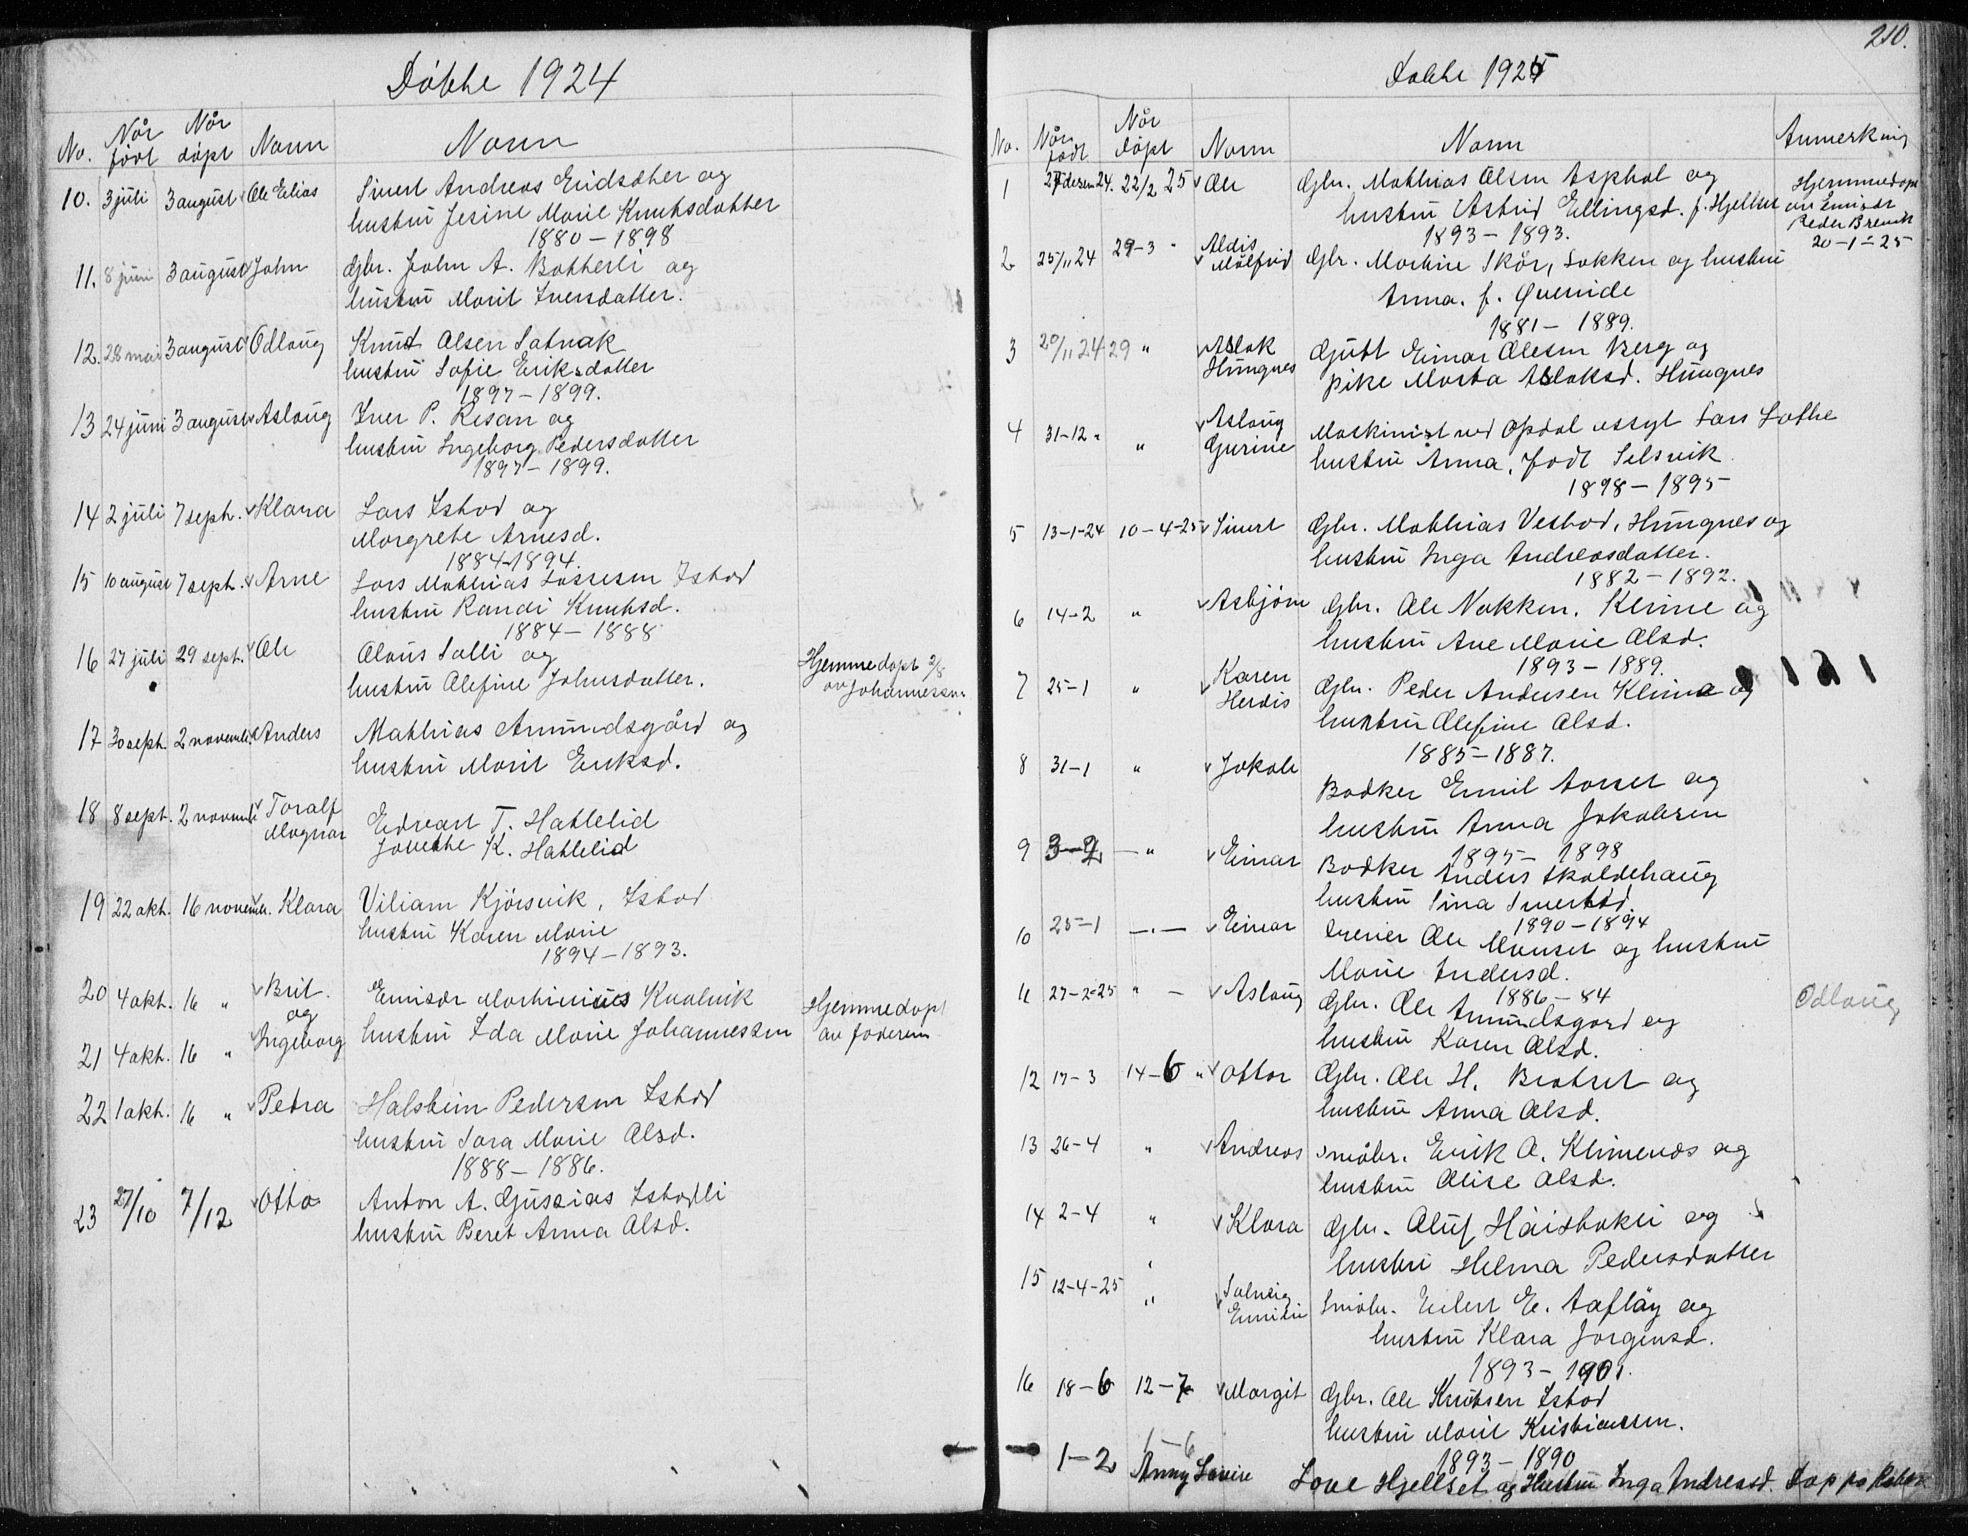 Døbte 1924
No. Når født Når døpt Navn Navn
10. 3 juli 3 august Ole Elias Sivert Andreas Eridsæter og
hustru Jesine Marie Knutsdatter
1880 – 1898
11. 8 juni 3 august John Gbr. John A. Botterli og
hustru Marit Iversdatter.
12. 28 mai 3 august Odlaug Knut Olsen Satnak
hustru Sofie Eriksdatter
1897 – 1899.
13 24 juni 3 august Aslaug Iver P. Risan og
hustru Ingeborg Pedersdatter
1897 – 1899.
14 2 juli 7 sept. Klara Lars Istad og
Margrete Arnesd.
1884–1894.
15 10 august 7 sept. Arne Lars Mathias Lassesen Istad
hustru Randi Knutsd.
1884 – 1888
16 27 juli 29 sept. Ole Olaus Salli og
hustru Olefine Johnsdatter.
Hjemmedøpt 2/8
av Johannessen
17 30 sept. 2 novemb. Anders Mathias Amundsgård og
hustru Marit Eriksd.
18 8 sept. 2 novemb. Toralf
Magnar
Edvart T. Hatlelid
K. Hatlelid
19 22 okt. 16 novemb. Klara Viliam Kjørsvik, Istad
hustru Karen Marie
1894 – 1893.
20 4 okt. 16 " Brit
og
Emisær Martinius Kvalvik
21 4 okt. 16 " Ingeborg hustru Ida Marie Johannessen
Hjemmedøpt
av faderen
22 1 okt. 16 " Petra Halstein Pedersen Istad
hustru Sara Marie Olsd.
1888 – 1886.
23 27/10 7/12 Otto Anton A. Gussiås Istadli
hustru Beret Anna Olsd.
210.
Døbte 1925
No. Når født Når døpt Navn Navn Anmerkning
1 24. 22/2 25 Ole Gbr. Mathias Olsen Asphol og
hustru Astrid Ellingsd. f. Hjellset
1893 – 1893.
Hjemmedøpt
av emisær
Peder Brevik
20–1–25
2 25/11 24 29–3 " Aldis
Målfrid
Gbr. Martin Skår, Sokken og hustru
Anna. f. Øveraide
1881 – 1889.
3 20/11 24 29 " Aslak
Hungnes
Gutt Einar Olesen Berg og
pike Marta Aslaksd. Hungnes
4 31–12 " " Aslaug
Gurine
Maskinist ved Opdøl Lars Lothe
hustru Anna, født Selsvik
1898 – 1895
5 13–1–24 10–4–25 Sivert Gbr. Mathias Vestad, Hungnes og
hustru Inga Andreasdatter.
1882 – 1892.
6 14–2 " Asbjørn Gbr. Ole Nakken, Kleive og
hustru Ane Marie Olsd.
1893 – 1889.
7 25–1 " Karen
Herdis
Gbr. Peder Andersen Kleive og
hustru Olefine Olsd.
1885 – 1887.
8 31–1 " Jakob
Bødker Emil Aarset og
hustru Anna Jakobsen
1895 – 1898
9 3–2 — " Einar Bødker Anders Skaldehaug
hustru Sina Sivertsd.
1890 – 1894
10 25–1 —"— Einar Ole Monset og hustru
Marie Andersd.
1886 – 84
11 27–2–25 " – Aslaug Gbr. Ole Amundsgård og
hustru Karen Olsd.
Odlaug
12 17–3 14–6 " Ottar Gbr. Ole H. Bratset og
hustru Anna Olsd.
13 26–4 " Andreas småbr. Erik A. Kleivenås og
hustru Olise Olsd.
14 2–4 " Klara Gbr. Oluf Håistakli og
hustru Helma Pedersdatter
15 12–4–25 " Solveig
Emilie
småbr. Eilert E. Aafløy og
hustru Klara Jørgensd.
1893 – 1901.
16 18–6 12–7 Margit Gbr. Ole Knutsen Istad
hustru Marit Kristiansen.
1893 – 1890
1–2 1–6
Anny Lovise Love Hjellset og Hustru Inga Andreasd.